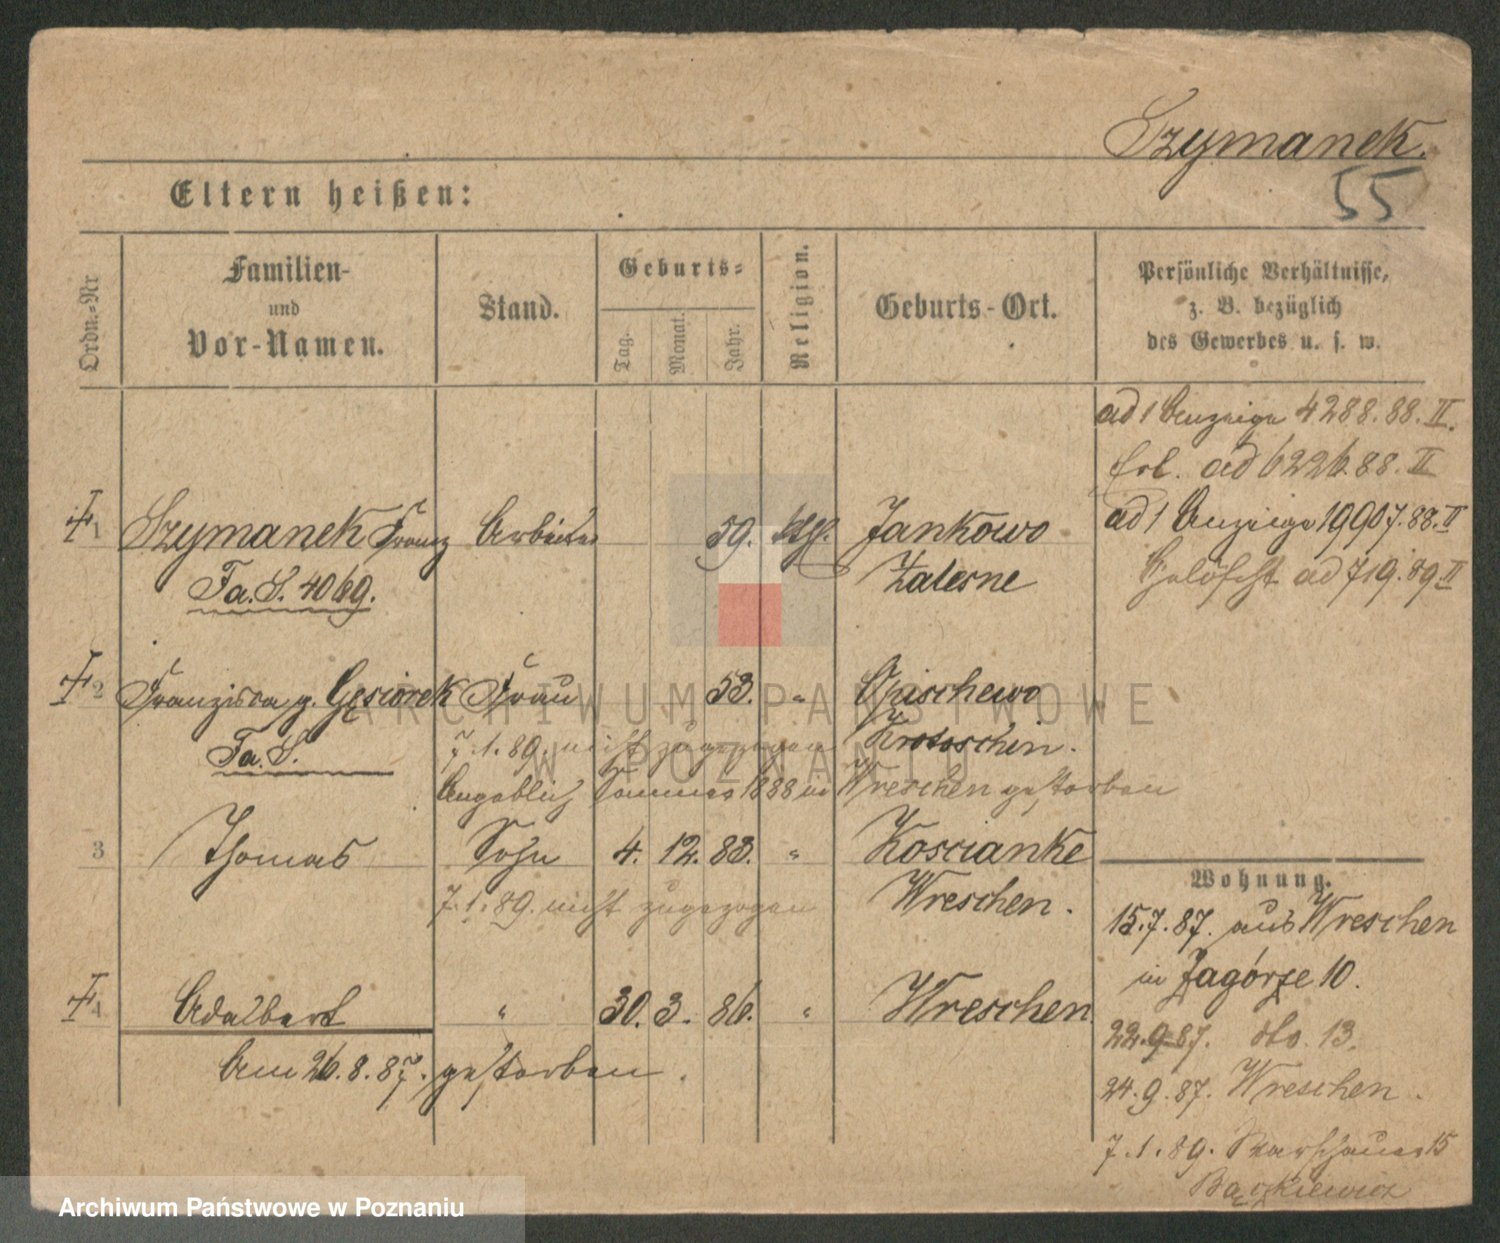 Szymanek.
55
Eltern heißen:
Ordn.-Nr
Familien-
und
Vor-Namen.
Stand.
Geburts-
Tag.
Monat.
Jahr.
Religion.
Geburts-Ort.
Persönliche Verhältnisse,
z. B. bezüglich
des Gewerbes u. s. w.
ad 1 Anzeige 4288.88.II.
Erl. ad 6226.88.II
ad 1 Anzeige 19907.88.II
Gelöscht ad 719.89 II
1 Szymanek Franz Arbeiter 59. ktg. Jankowo
Fa. S. 4069. Zalesne
2 Franziska g. Gęsiorek Frau 53. "
Fa. S. Krotoschin.
7.1.89. nicht zugezogen
Angeblich Sommer 1888 in Wreschen gestorben
3 Thomas Sohn 4. 12. 83. " Koscianke
7.1.89. nicht zugezogen Wreschen.
4 Adalbert " 30. 3. 86. " Wreschen
Am 26.8.87. gestorben.
Wohnung.
15.7.87. aus Wreschen
in Zagórze 10.
22.9.87. dto. 13.
24.9.87. Wreschen.
7.1.89. 15
Bączkiewicz
ARCHIWUM PAŃSTWOWE
W POZNANIU
Archiwum Państwowe w Poznaniu